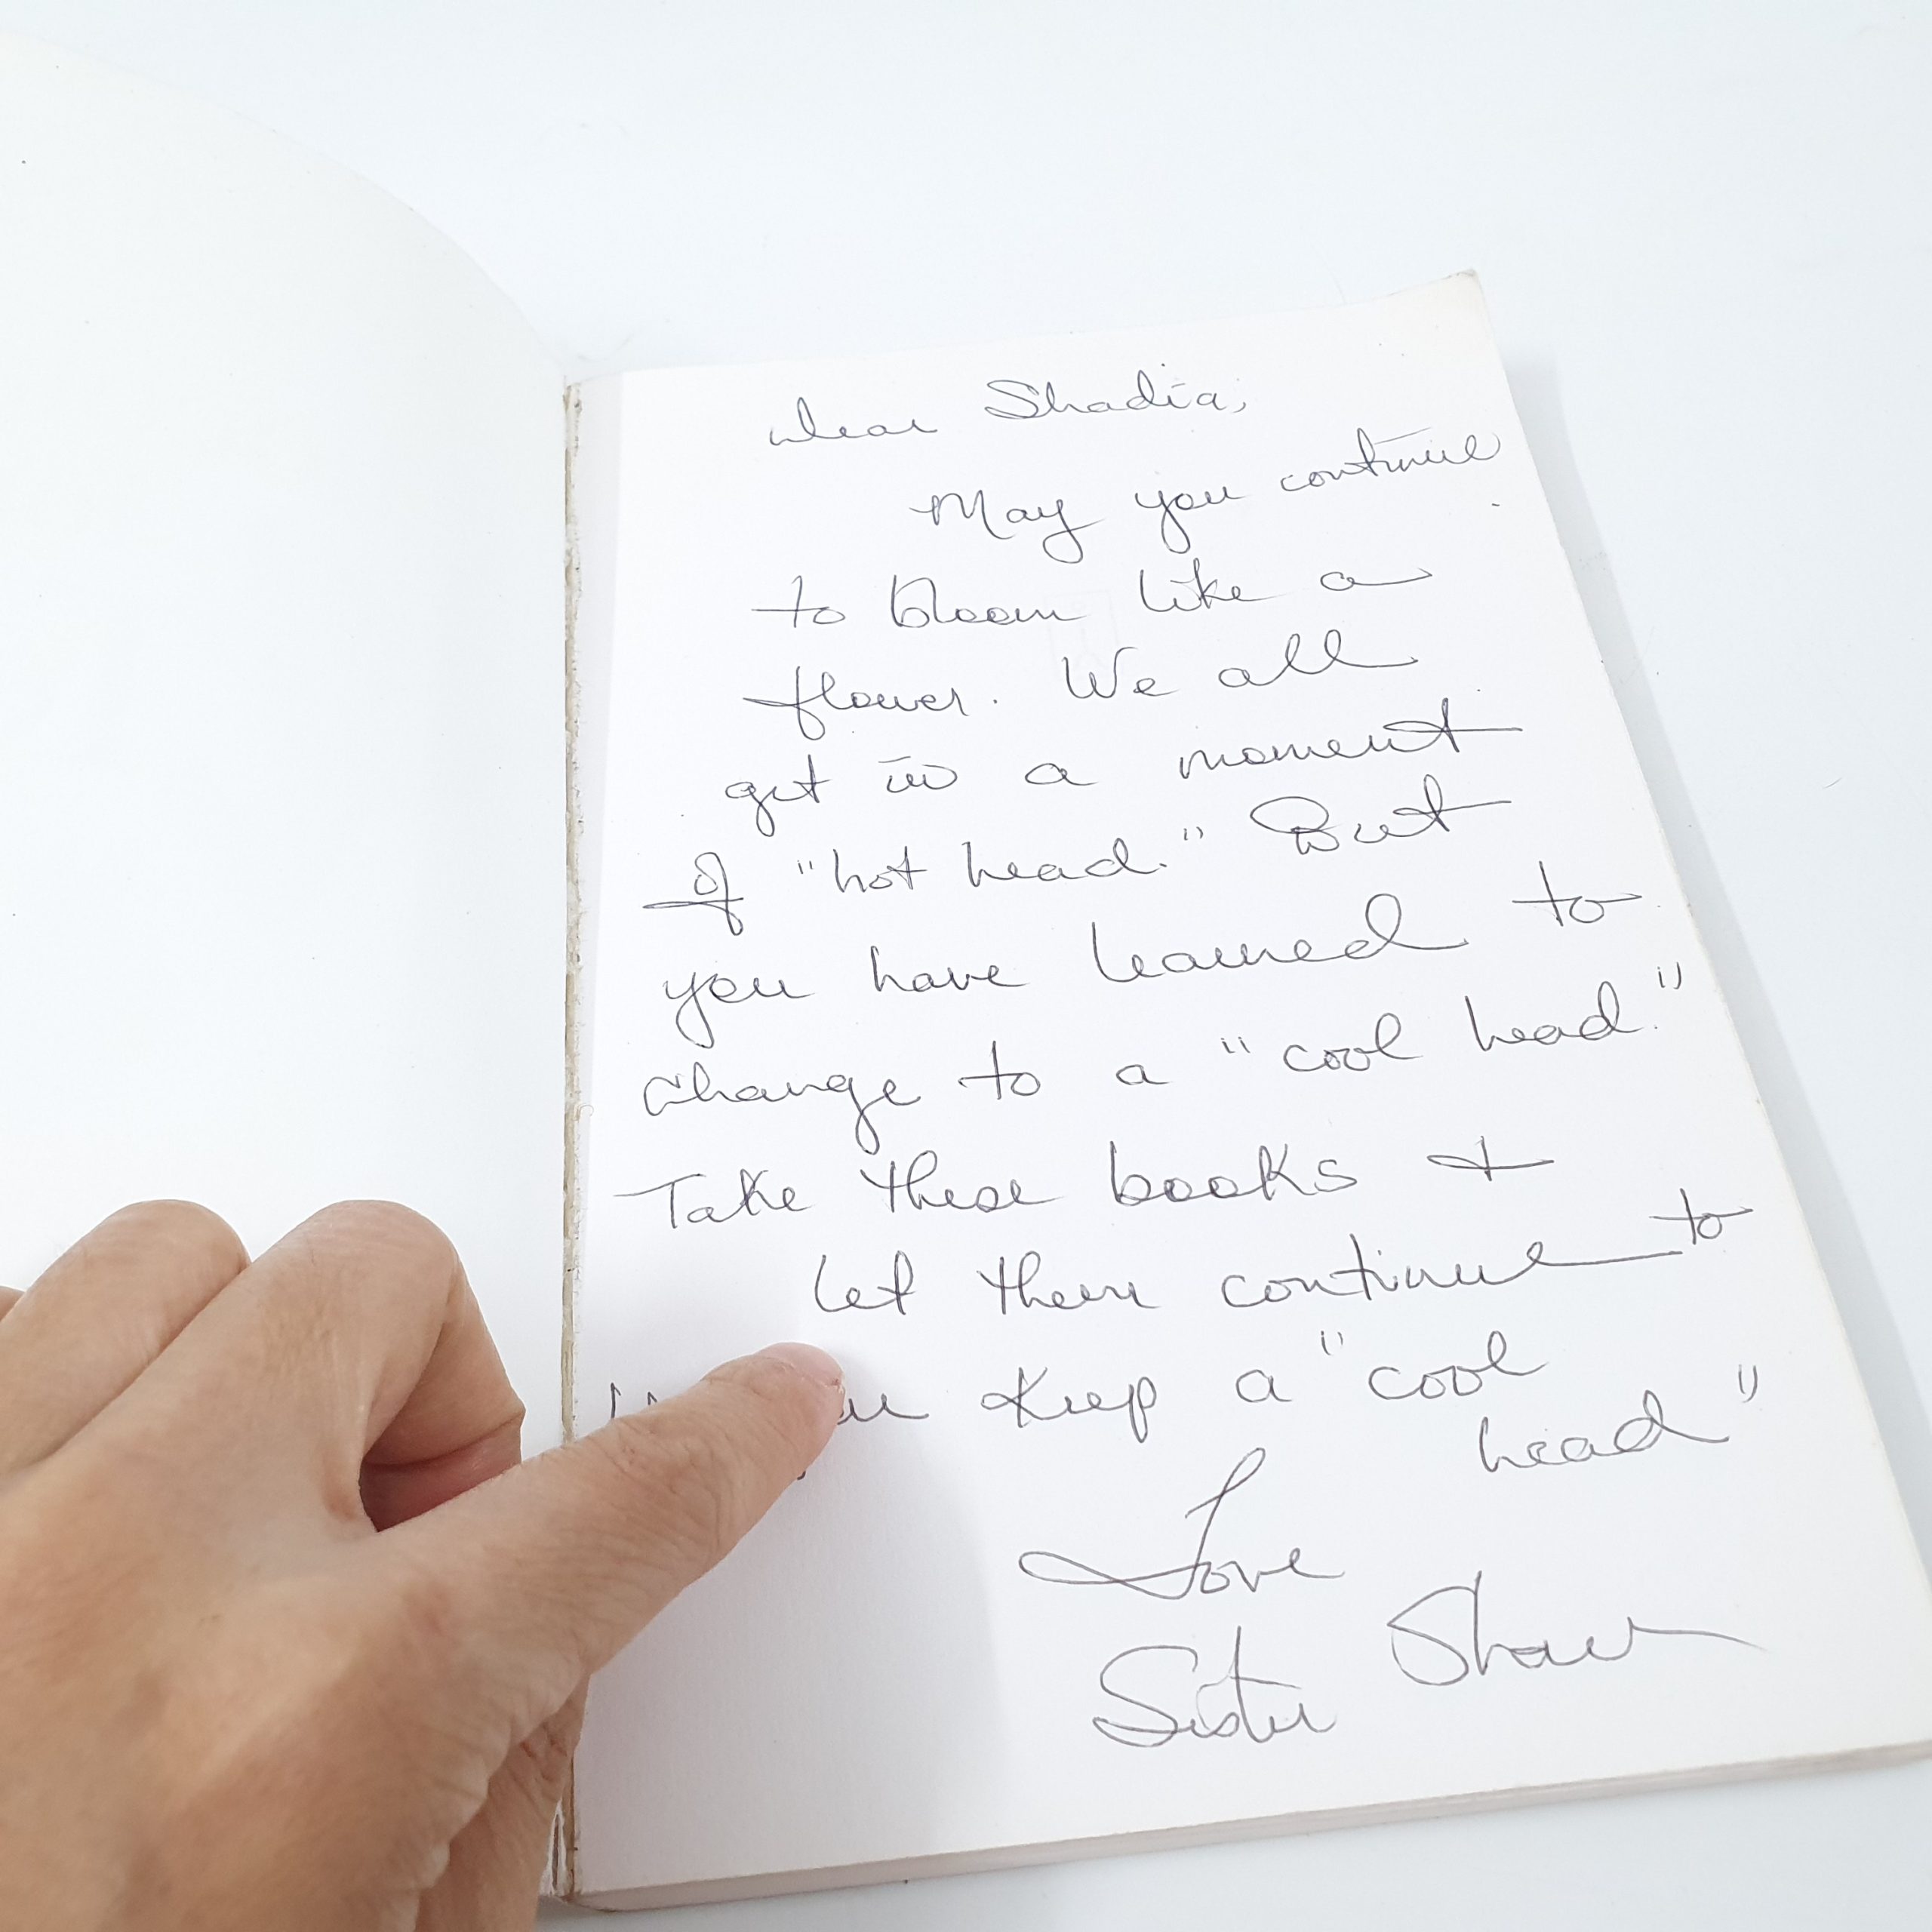 Dear Shadia,
May you continue
to bloom like a
flower. We all
get in a moment
of "hot head." But
you have learned to
change to a "cool head."
Take these books +
let them continue to
keep a "cool
head"
Love
Sister Shaw